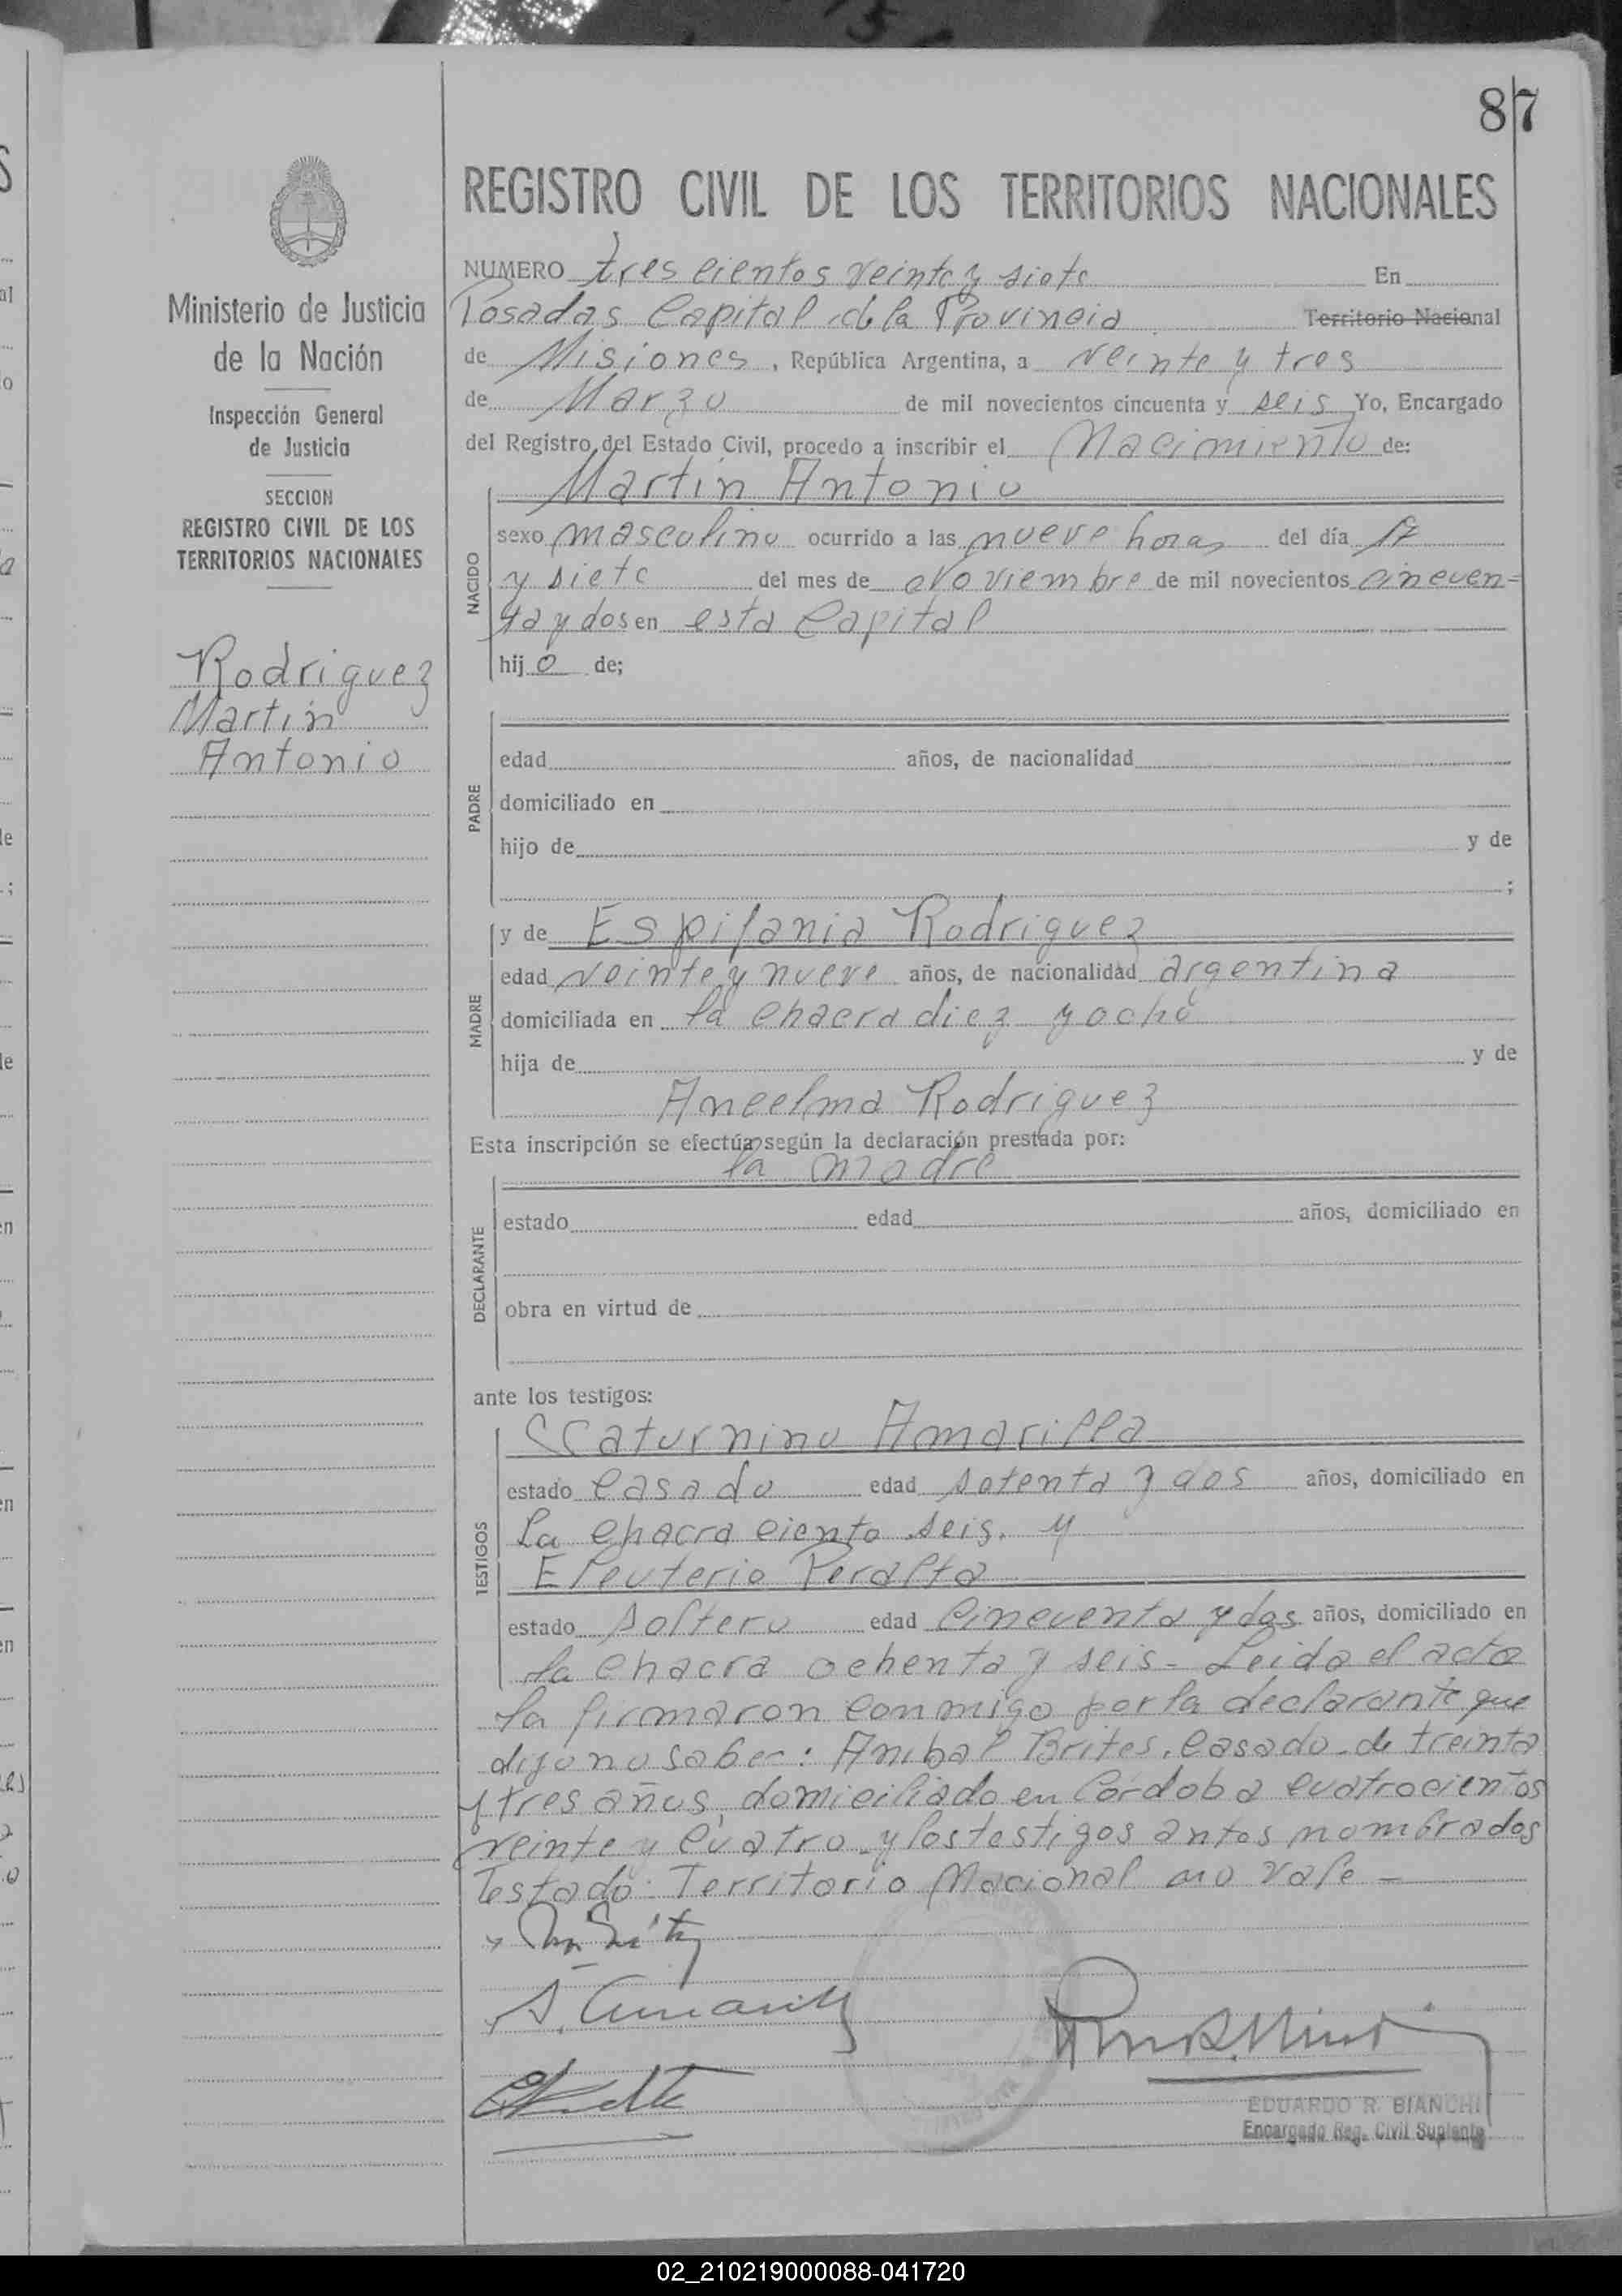 87
REGISTRO CIVIL DE LOS TERRITORIOS NACIONALES
Ministerio de Justicia
de la Nación
Inspección General
de Justicia
SECCION
REGISTRO CIVIL DE LOS
TERRITORIOS NACIONALES
Rodriguez
Martin
Antonio
NUMERO tres cientos veinte y siete En
Posadas Capital de la Provincia Territorio Nacional
de Misiones, República Argentina, a veinte y tres
de Marzo de mil novecientos cincuenta y seis Yo, Encargado
del Registro del Estado Civil, procedo a inscribir el Nacimiento de:
Martin Antonio
NACIDO
sexo masculino ocurrido a las nueve horas del día
y siete del mes de Noviembre de mil novecientos cincuen=
ta y dos en esta Capital
hijo de;
PADRE
edad años, de nacionalidad
domiciliado en
hijo de y de
;
MADRE
y de Espifania Rodriguez
edad veinte y nueve años, de nacionalidad argentina
domiciliada en la chacra diez y ocho
hija de y de
Ancelma Rodriguez
Esta inscripción se efectúa según la declaración prestada por:
la madre
DECLARANTE
estado edad años, domiciliado en
obra en virtud de
ante los testigos:
TESTIGOS
Scaturnino Amarilla
estado casado edad setenta y dos años, domiciliado en
La chacra ciento seis. y
Eleuterio Peralta
estado soltero edad cincuenta y dos años, domiciliado en
la chacra ochenta y seis - Leida el acta
la firmaron conmigo por la declarante que
dijo no saber: Anibal Brites, casado de treinta
y tres años, domiciliado en Córdoba cuatrocientos
veinte y cuatro y los testigos antes nombrados
Testado: Territorio Nacional no vale -
S. Amarilla
EDUARDO R. BIANCHI
Encargado Reg. Civil Suplente
02_210219000088-041720